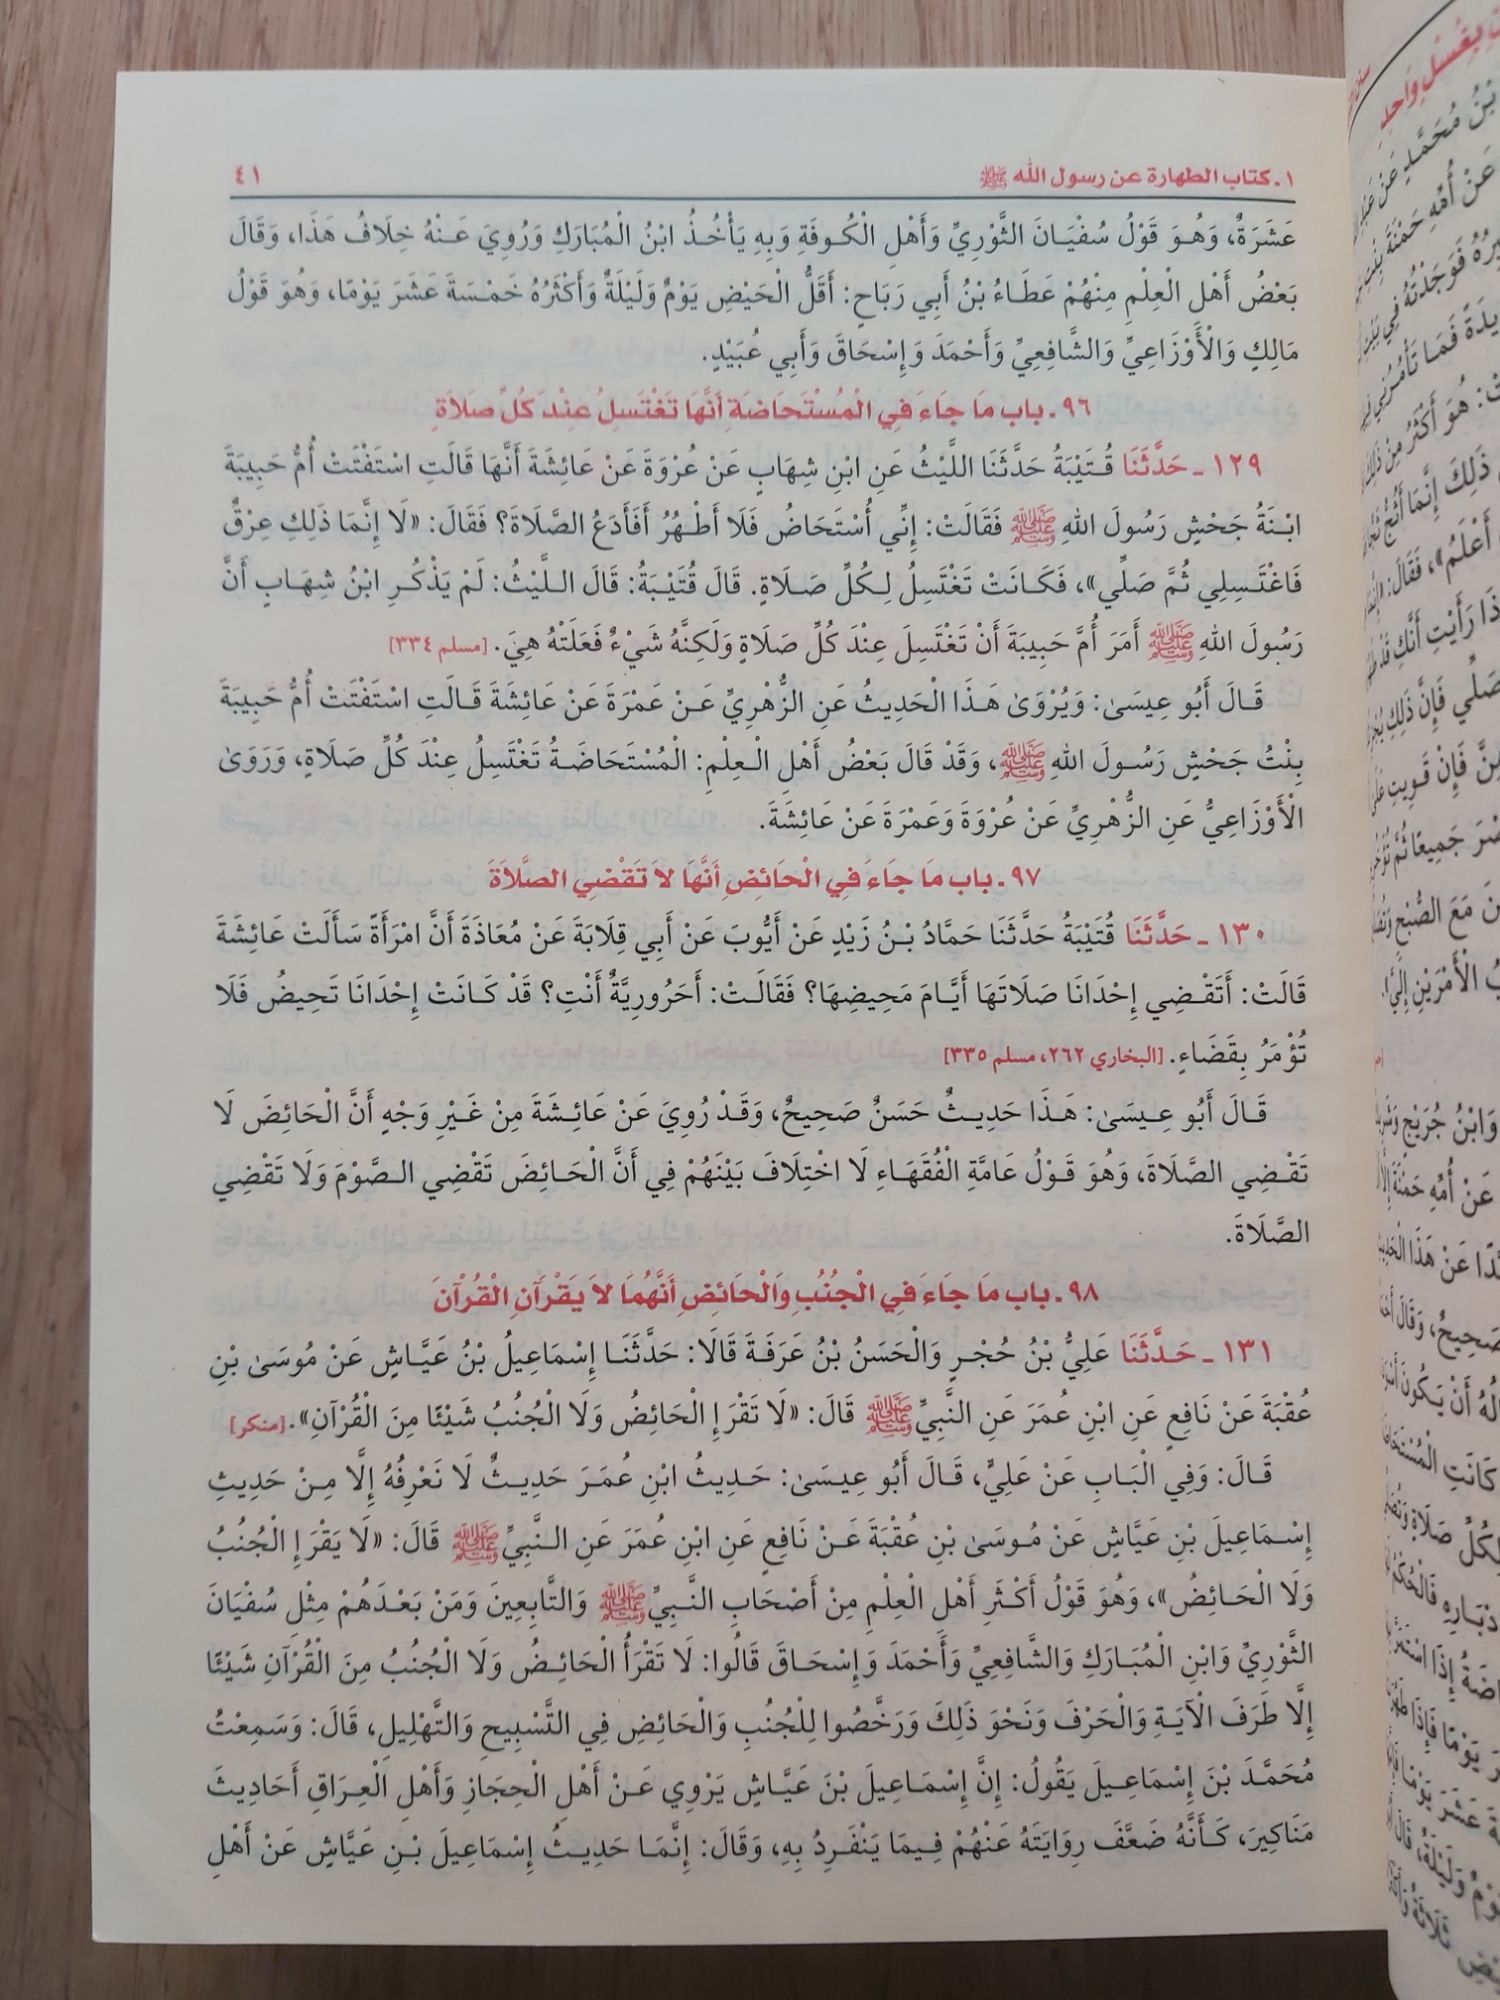 ١ - كتاب الطهارة عن رسول الله ﷺ ٤١
عَشَرَةٌ، وَهُوَ قَوْلُ سُفْيَانَ الثَّوْرِيِّ وَأَهْلِ الْكُوفَةِ وَبِهِ يَأْخُذُ ابْنُ الْمُبَارَكِ وَرُوِيَ عَنْهُ خِلَافُ هَذَا، وَقَالَ
بَعْضُ أَهْلِ الْعِلْمِ مِنْهُمْ عَطَاءُ بْنُ أَبِي رَبَاحٍ: أَقَلُّ الْحَيْضِ يَوْمٌ وَلَيْلَةٌ وَأَكْثَرُهُ خَمْسَةَ عَشَرَ يَوْمًا، وَهُوَ قَوْلُ
مَالِكٍ وَالْأَوْزَاعِيِّ وَالشَّافِعِيِّ وَأَحْمَدَ وَإِسْحَاقَ وَأَبِي عُبَيْدٍ.
٩٦ - باب مَا جَاءَ فِي الْمُسْتَحَاضَةِ أَنَّهَا تَغْتَسِلُ عِنْدَ كُلِّ صَلاَةٍ
١٢٩ - حَدَّثَنَا قُتَيْبَةُ حَدَّثَنَا اللَّيْثُ عَنِ ابْنِ شِهَابٍ عَنْ عُرْوَةَ عَنْ عَائِشَةَ أَنَّهَا قَالَتِ اسْتَفْتَتْ أُمُّ حَبِيبَةَ
ابْنَةُ جَحْشٍ رَسُولَ اللهِ ﷺ فَقَالَتْ: إِنِّي أُسْتَحَاضُ فَلَا أَطْهُرُ أَفَأَدَعُ الصَّلَاةَ؟ فَقَالَ: «لَا إِنَّمَا ذَلِكِ عِرْقٌ
فَاغْتَسِلِي ثُمَّ صَلِّي»، فَكَانَتْ تَغْتَسِلُ لِكُلِّ صَلَاةٍ. قَالَ قُتَيْبَةُ: قَالَ اللَّيْثُ: لَمْ يَذْكُرِ ابْنُ شِهَابٍ أَنَّ
رَسُولَ اللهِ ﷺ أَمَرَ أُمَّ حَبِيبَةَ أَنْ تَغْتَسِلَ عِنْدَ كُلِّ صَلَاةٍ وَلَكِنَّهُ شَيْءٌ فَعَلَتْهُ هِيَ. [مسلم ٣٣٤]
قَالَ أَبُو عِيسَىٰ: وَيُرْوَىٰ هَذَا الْحَدِيثُ عَنِ الزُّهْرِيِّ عَنْ عَمْرَةَ عَنْ عَائِشَةَ قَالَتِ اسْتَفْتَتْ أُمُّ حَبِيبَةَ
بِنْتُ جَحْشٍ رَسُولَ اللهِ ﷺ، وَقَدْ قَالَ بَعْضُ أَهْلِ الْعِلْمِ: الْمُسْتَحَاضَةُ تَغْتَسِلُ عِنْدَ كُلِّ صَلَاةٍ، وَرَوَىٰ
الْأَوْزَاعِيُّ عَنِ الزُّهْرِيِّ عَنْ عُرْوَةَ وَعَمْرَةَ عَنْ عَائِشَةَ.
٩٧ - باب مَا جَاءَ فِي الْحَائِضِ أَنَّهَا لاَ تَقْضِي الصَّلاَةَ
١٣٠ - حَدَّثَنَا قُتَيْبَةُ حَدَّثَنَا حَمَّادُ بْنُ زَيْدٍ عَنْ أَيُّوبَ عَنْ أَبِي قِلَابَةَ عَنْ مُعَاذَةَ أَنَّ امْرَأَةً سَأَلَتْ عَائِشَةَ
قَالَتْ: أَتَقْضِي إِحْدَانَا صَلَاتَهَا أَيَّامَ مَحِيضِهَا؟ فَقَالَتْ: أَحَرُورِيَّةٌ أَنْتِ؟ قَدْ كَانَتْ إِحْدَانَا تَحِيضُ فَلَا
تُؤْمَرُ بِقَضَاءٍ. [البخاري ٢٦٢، مسلم ٣٣٥]
قَالَ أَبُو عِيسَىٰ: هَذَا حَدِيثٌ حَسَنٌ صَحِيحٌ، وَقَدْ رُوِيَ عَنْ عَائِشَةَ مِنْ غَيْرِ وَجْهٍ أَنَّ الْحَائِضَ لَا
تَقْضِي الصَّلَاةَ، وَهُوَ قَوْلُ عَامَّةِ الْفُقَهَاءِ لَا اخْتِلَافَ بَيْنَهُمْ فِي أَنَّ الْحَائِضَ تَقْضِي الصَّوْمَ وَلَا تَقْضِي
الصَّلَاةَ.
٩٨ - باب مَا جَاءَ فِي الْجُنُبِ وَالْحَائِضِ أَنَّهُمَا لاَ يَقْرَآنِ الْقُرْآنَ
١٣١ - حَدَّثَنَا عَلِيُّ بْنُ حُجْرٍ وَالْحَسَنُ بْنُ عَرَفَةَ قَالَا: حَدَّثَنَا إِسْمَاعِيلُ بْنُ عَيَّاشٍ عَنْ مُوسَىٰ بْنِ
عُقْبَةَ عَنْ نَافِعٍ عَنِ ابْنِ عُمَرَ عَنِ النَّبِيِّ ﷺ قَالَ: «لَا تَقْرَإِ الْحَائِضُ وَلَا الْجُنُبُ شَيْئًا مِنَ الْقُرْآنِ». [منكر]
قَالَ: وَفِي الْبَابِ عَنْ عَلِيٍّ، قَالَ أَبُو عِيسَىٰ: حَدِيثُ ابْنِ عُمَرَ حَدِيثٌ لَا نَعْرِفُهُ إِلَّا مِنْ حَدِيثِ
إِسْمَاعِيلَ بْنِ عَيَّاشٍ عَنْ مُوسَىٰ بْنِ عُقْبَةَ عَنْ نَافِعٍ عَنِ ابْنِ عُمَرَ عَنِ النَّبِيِّ ﷺ قَالَ: «لَا يَقْرَإِ الْجُنُبُ
وَلَا الْحَائِضُ»، وَهُوَ قَوْلُ أَكْثَرِ أَهْلِ الْعِلْمِ مِنْ أَصْحَابِ النَّبِيِّ ﷺ وَالتَّابِعِينَ وَمَنْ بَعْدَهُمْ مِثْلِ سُفْيَانَ
الثَّوْرِيِّ وَابْنِ الْمُبَارَكِ وَالشَّافِعِيِّ وَأَحْمَدَ وَإِسْحَاقَ قَالُوا: لَا تَقْرَأُ الْحَائِضُ وَلَا الْجُنُبُ مِنَ الْقُرْآنِ شَيْئًا
إِلَّا طَرَفَ الْآيَةِ وَالْحَرْفَ وَنَحْوَ ذَلِكَ وَرَخَّصُوا لِلْجُنُبِ وَالْحَائِضِ فِي التَّسْبِيحِ وَالتَّهْلِيلِ، قَالَ: وَسَمِعْتُ
مُحَمَّدَ بْنَ إِسْمَاعِيلَ يَقُولُ: إِنَّ إِسْمَاعِيلَ بْنَ عَيَّاشٍ يَرْوِي عَنْ أَهْلِ الْحِجَازِ وَأَهْلِ الْعِرَاقِ أَحَادِيثَ
مَنَاكِيرَ، كَأَنَّهُ ضَعَّفَ رِوَايَتَهُ عَنْهُمْ فِيمَا يَنْفَرِدُ بِهِ، وَقَالَ: إِنَّمَا حَدِيثُ إِسْمَاعِيلَ بْنِ عَيَّاشٍ عَنْ أَهْلِ